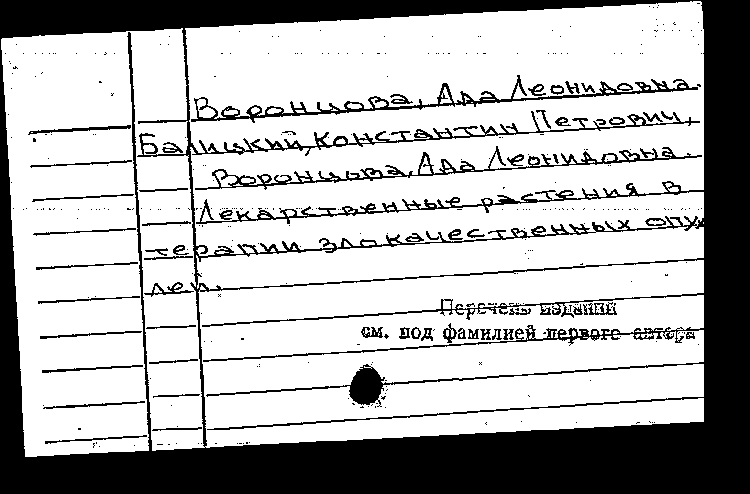 Воронцова, Ада Леонидовна.
Балицкий, Константин Петрович,
Воронцова, Ада Леонидовна.
Лекарственные растения в
терапии злокачественных опух
лей.
Перечень изданий
см. под фамилией первого автора